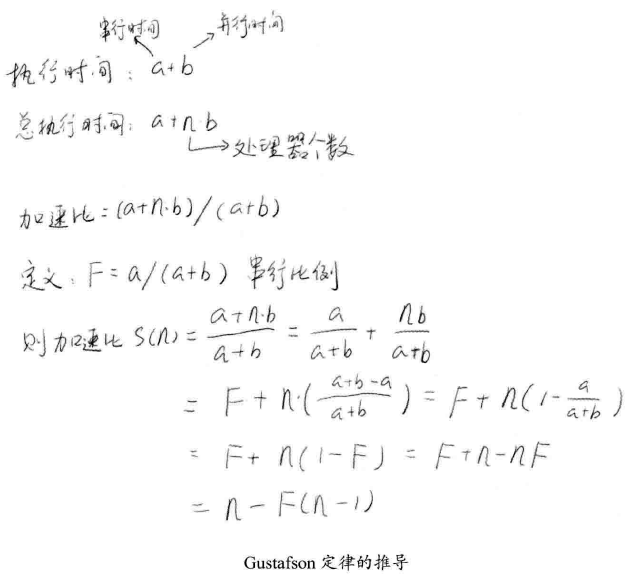 串行时间 并行时间
执行时间：a+b
总执行时间：a+n·b
处理器个数
加速比=(a+n·b)/(a+b)
定义：F=a/(a+b) 串行比例
则加速比 S(n) = \frac{a+n·b}{a+b} = \frac{a}{a+b} + \frac{nb}{a+b}
= F + n·(\frac{a+b-a}{a+b}) = F + n(1-\frac{a}{a+b})
= F + n(1-F) = F+n-nF
= n-F(n-1)
Gustafson 定律的推导